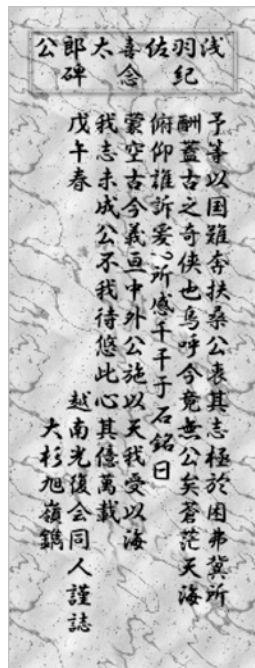 浅羽佐喜太郎公
紀念碑
予等以国難奔扶桑公哀其志極於困弗冀所
酬蓋古之奇侠也烏呼今竟無公矣蒼茫天海
俯仰誰訴爰心所感千干于石銘日
蒙空古今義亘中外公施以天我受以海
我志未成公不我待悠此心其億萬載
戊午春 越南光復会同人謹誌
大杉旭嶺鐫